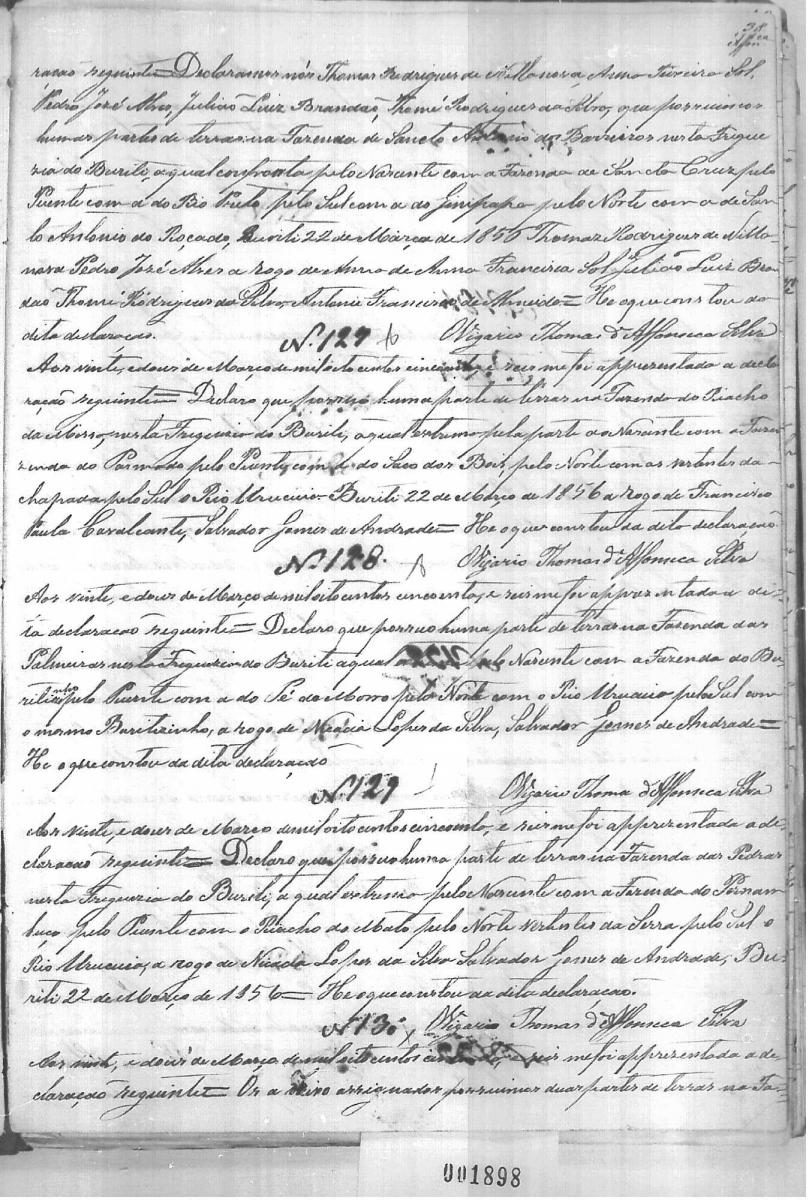 38
ração seguinte = Declaramos nós Thomas Rodrigues de Villanova, Anna Sol,
Pedro José Alves, Julião Luiz Brandão, Thomé Rodrigues da Silva, que possuimos
humas partes de terras na Fazenda de Sancto Antonio do Barreiros nesta Fregue
zia do Buriti, a qual confronta pelo Nascente com a Fazenda de Sancta Cruz pelo
Puente com a do Rio Preto, pelo Sul com a do Genipapo pelo Norte com a de San
to Antonio do Roçado, Buriti 22 de Março de 1856 Thomaz Rodrigues de Villa
nova Pedro José Alves a rogo de Anna Francisca Sol, Julião Luiz Bran
dão Thomé Rodrigues da Silva, Antonio Francisco de Almeida = He o que constou da
dita declaração.
N. 127
OVigario Thomas d'Affonseca Silva
Aos vinte, e dous de Março de mil oito centos cincoenta e seis me foi apprezentada a decla
ração seguinte = Declaro que possuo huma parte de terras na Fazenda do Riacho
do Morro, nesta Freguezia do Buriti, a qual extrema pela parte do Nascente com a Faze
zenda do pelo Puente com a do Saco dos Bois, pelo Norte com as vertentes da
chapada pelo Sul o Rio Urucuia - Buriti 22 de Março de 1856 a rogo de Francisco
Paula Cavalcanti, Salvador Gomes de Andrade = He o que constou da dita declaração
N. 128.
OVigario Thomas d'Affonseca Silva
Aos vinte, e dous de Março de mil oito centos cincoenta, e seis me foi apprezentada a di
ta declaração seguinte = Declaro que possuo huma parte de terras na Fazenda das
Palmeiras nesta Freguezia do Buriti a qual pelo Nascente com a Fazenda do Bu
ritizinho pelo Puente com a do Pé do Morro pelo Norte com o Rio Urucuia pelo Sul com
o mesmo Buritizinho, a rogo de Lopes da Silva, Salvador Gomes de Andrade =
He o que constou da dita declaração
N. 129
OVigario Thoma d'Affonseca Silva
Aos vinte, e dous de Março de mil oito centos cincoenta, e seis me foi apprezentada a de
claração seguinte = Declaro que possuo huma parte de terras na Fazenda das Pedras
nesta Freguezia do Buriti, a qual extrema pelo Nascente com a Fazenda do Pernam
buco pelo Puente com o Riacho do Mato pelo Norte vertentes da Serra pelo Sul o
Rio Urucuia, a rogo de Lopes da Silva Salvador Gomes de Andrade, Bu
riti 22 de Março de 1856 = He o que constou da dita declaração.
N 130
OVigario Thomas d'Affonseca Silva
Aos vinte, e dous de Março de mil oito centos e seis me foi apprezentada a de
claração seguinte = Os a baixo assignados possuimos duas partes de terras na Fa-
001898